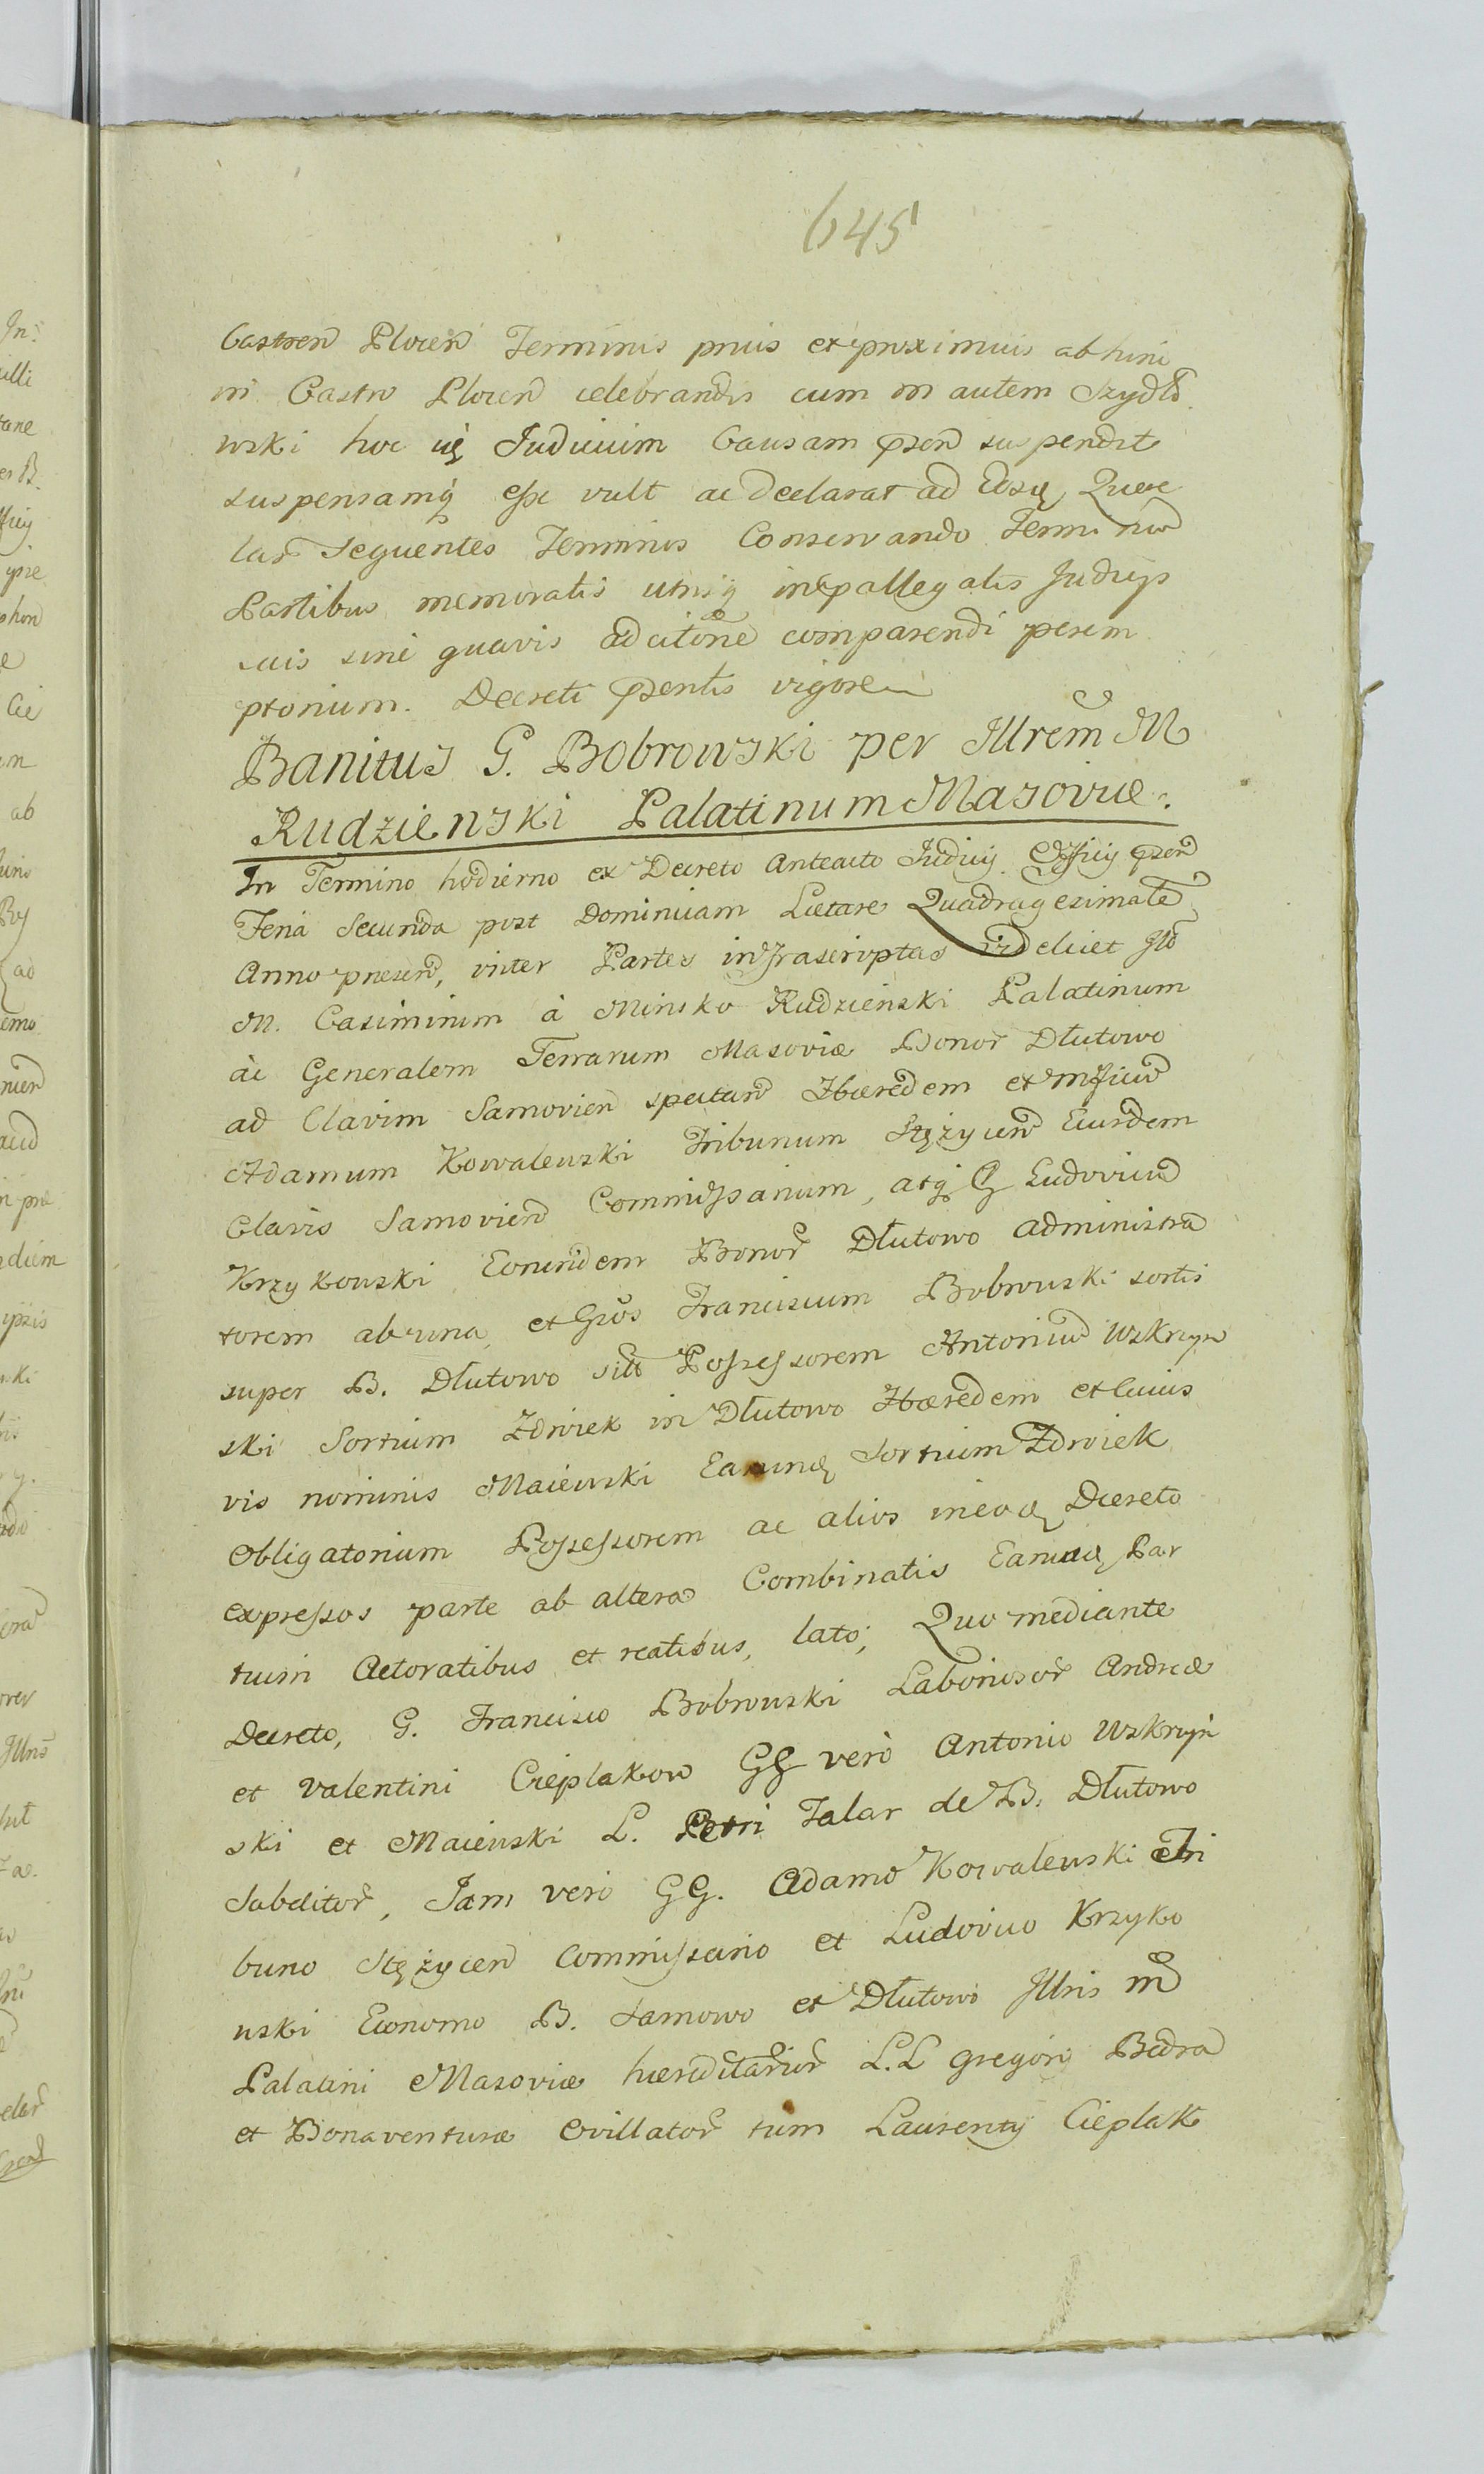 645
Castren Plocen Terminis primis et proximius ab hinc
in Castro Plocen celebrandis cum m autem Szydło
wski hoc iq Judicium Causam pñsen suspendit
suspensamq esse vult ac declarat ad Eosq Quere
lar Sequentes Terminos Conservando Terminũ
Partibus memoratis utrisq allegatis Judicys
suis sine quavis adcitõne comparendi perem
ptorium. Decreti pñsentis vigore
Banitus G. Bobrowski per Illrem M
Rudzienski Palatinum Masoviæ.
In Termino hodierno ex Decreto Anteacto Judicij Officij pñsen
Feria Secunda post Dominicam Lætare Quadragesimale
Anno præsen, inter Partes infrascriptas videlicet Illr
M. Casimirum à Minsko Rudzienski Palatinum
ac Generalem Terrarum Masoviæ Bonor Dłutowo
ad Clavim Samovien spectan Hæredem et Mficum
Adamum Kowalewski Tribunum Stężycen Eiusdem
Clavis Samovien Commissarium, atq G Ludovicum
Krzykowski Eorundem Bonor Dłutowo administra
torem ab una, et Gros Franciscum Bobrowski sortis
super B. Dłutowo sitt Possessorem Antonium Wskrzyn
ski Sortium Zdrviek in Dłutowo Hæredem et cuius
vis nominis Maiewski Earunq Sortium Zdrviek
Obligatorium Possessorem ac alios ineoq Decreto
expressos parte ab altera Combinatis Earunq Par
tium Actoratibus et reatibus, lato; Quo mediante
Decreto, G. Francisco Bobrowski Laboriosor Andreæ
et Valentini Cieplakow GG vero Antonio Wskrzyn
ski et Maiewski L. Petri Talar de B. Dłutowo
Subditor, Iam vero GG. Adamo Kowalewski Tri
buno Stężycen Commissario et Ludovico Krzyko
wski Economo B. Samowo et Dłutowo Illris M
Palatini Masoviæ hæreditarior L.L Gregorij Bedra
et Bonaventuræ Ovillator tum Laurentij Cieplak